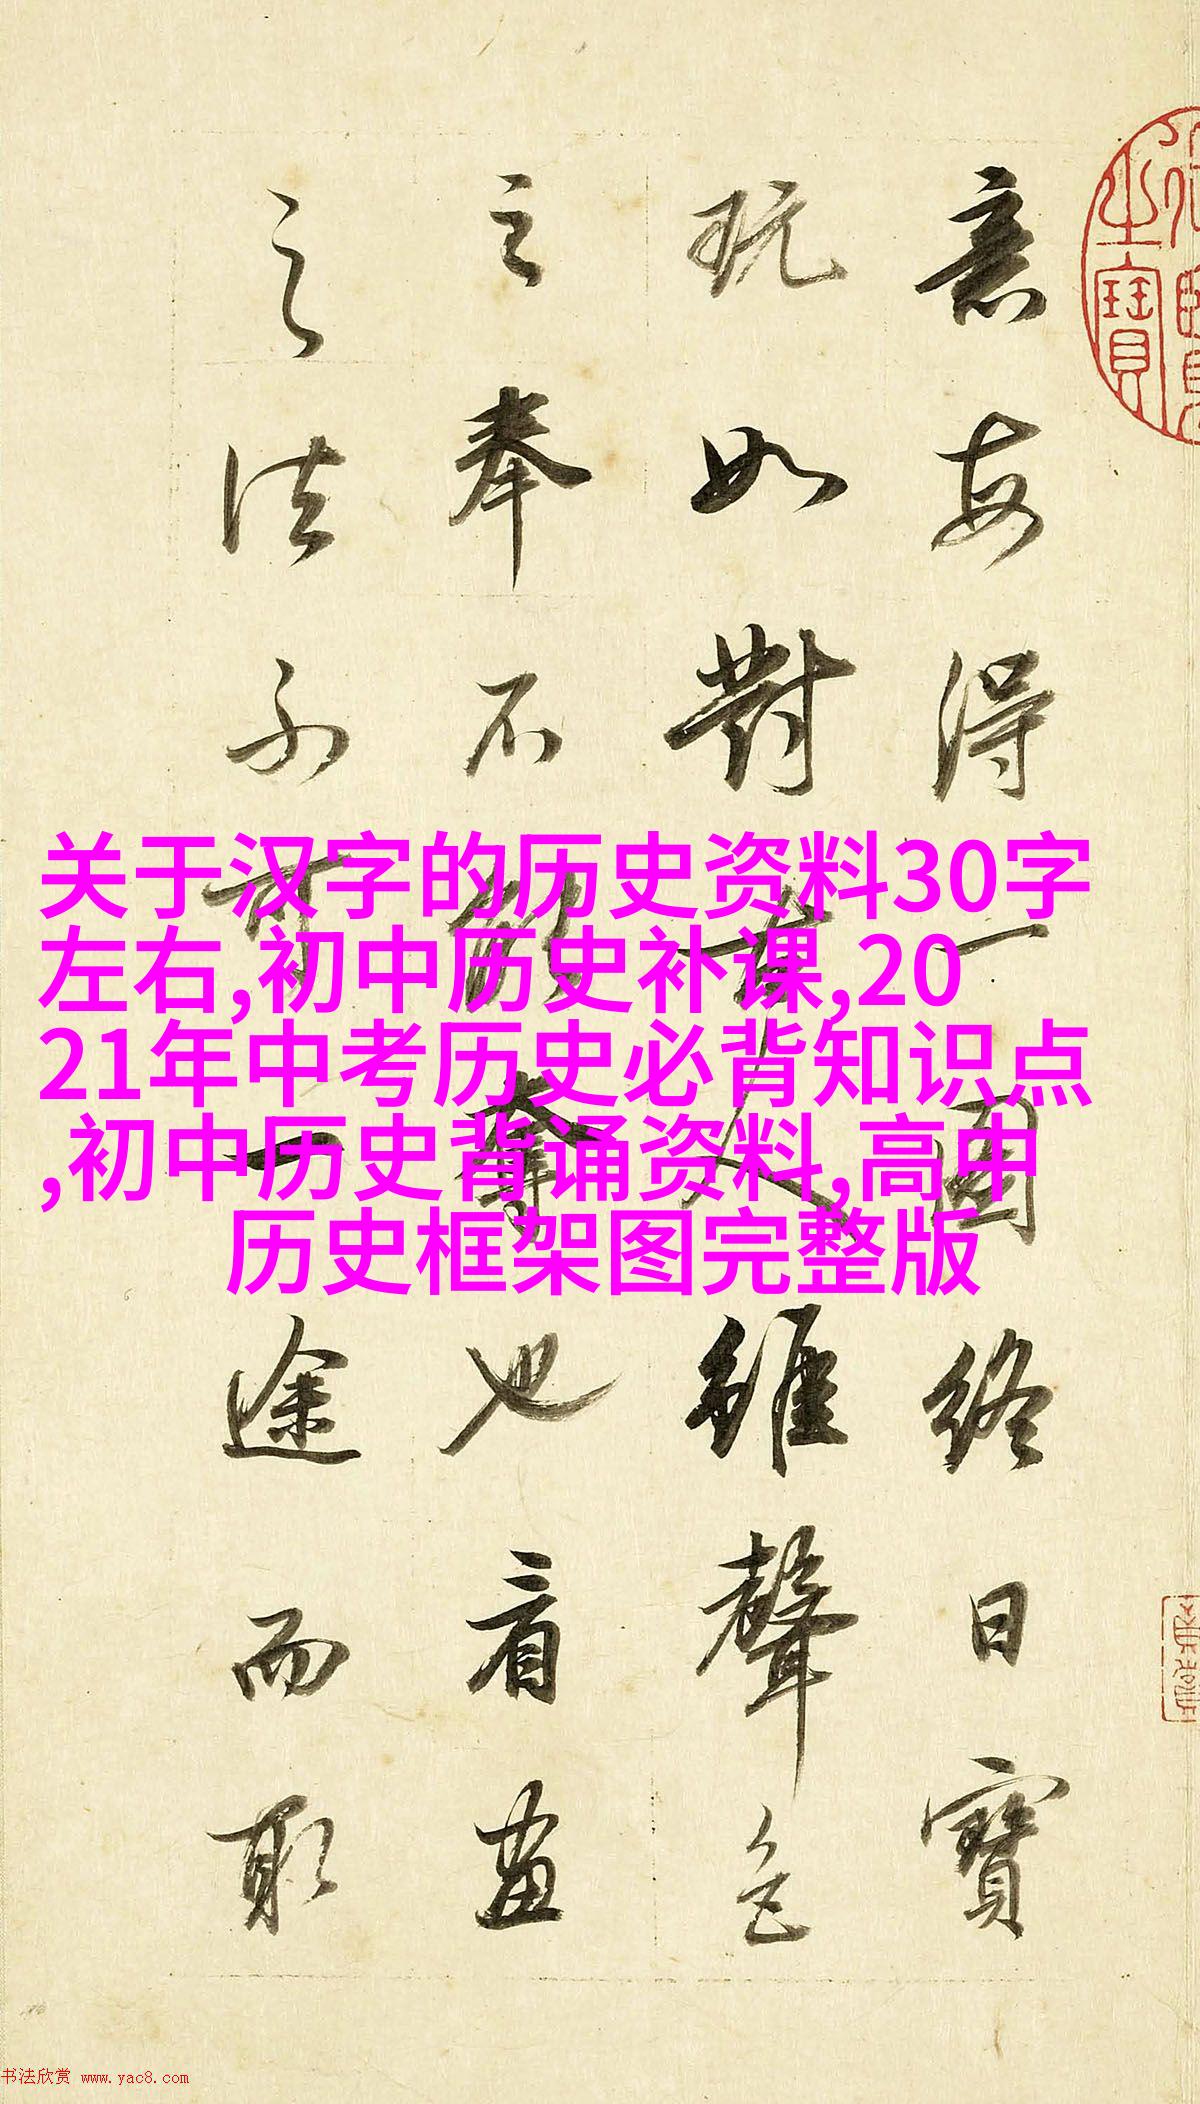 意每得一圖終日寶
玩如對古人雖聲色
之奉不能奪也看畫
之法不可一途而取
之寶
关于汉字的历史资料30字
左右,初中历史补课,20
21年中考历史必背知识点
,初中历史背诵资料,高中
历史框架图完整版
书法欣赏 www.yac8.com